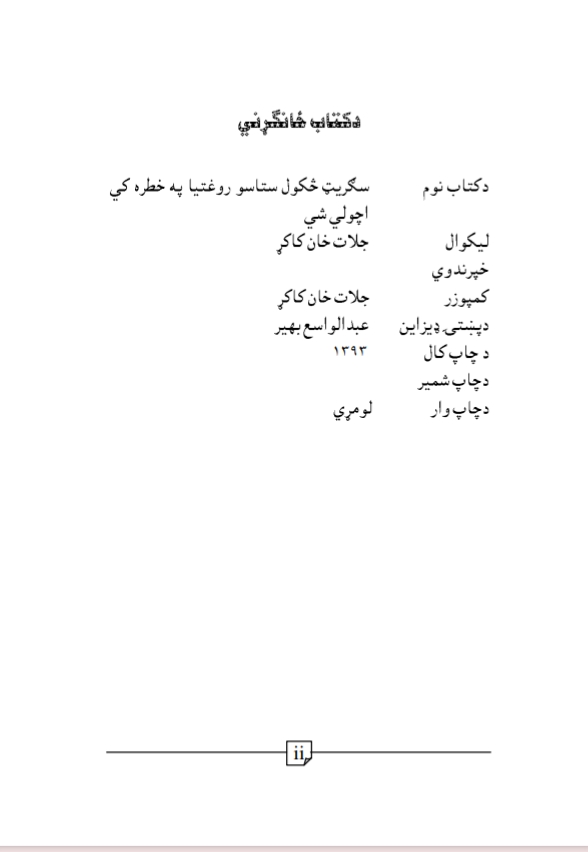 دکتاب ځانګړني
دکتاب نوم سګريټ څکول ستاسو روغتيا په خطره کي
اچولي شي
ليکوال جلات خان کاکړ
خپرندوي
کمپوزر جلات خان کاکړ
دپښتۍ ډيزاين عبدالواسع بهير
د چاپ کال ۱۳۹۳
دچاپ شمير
دچاپ وار لومړي
ii